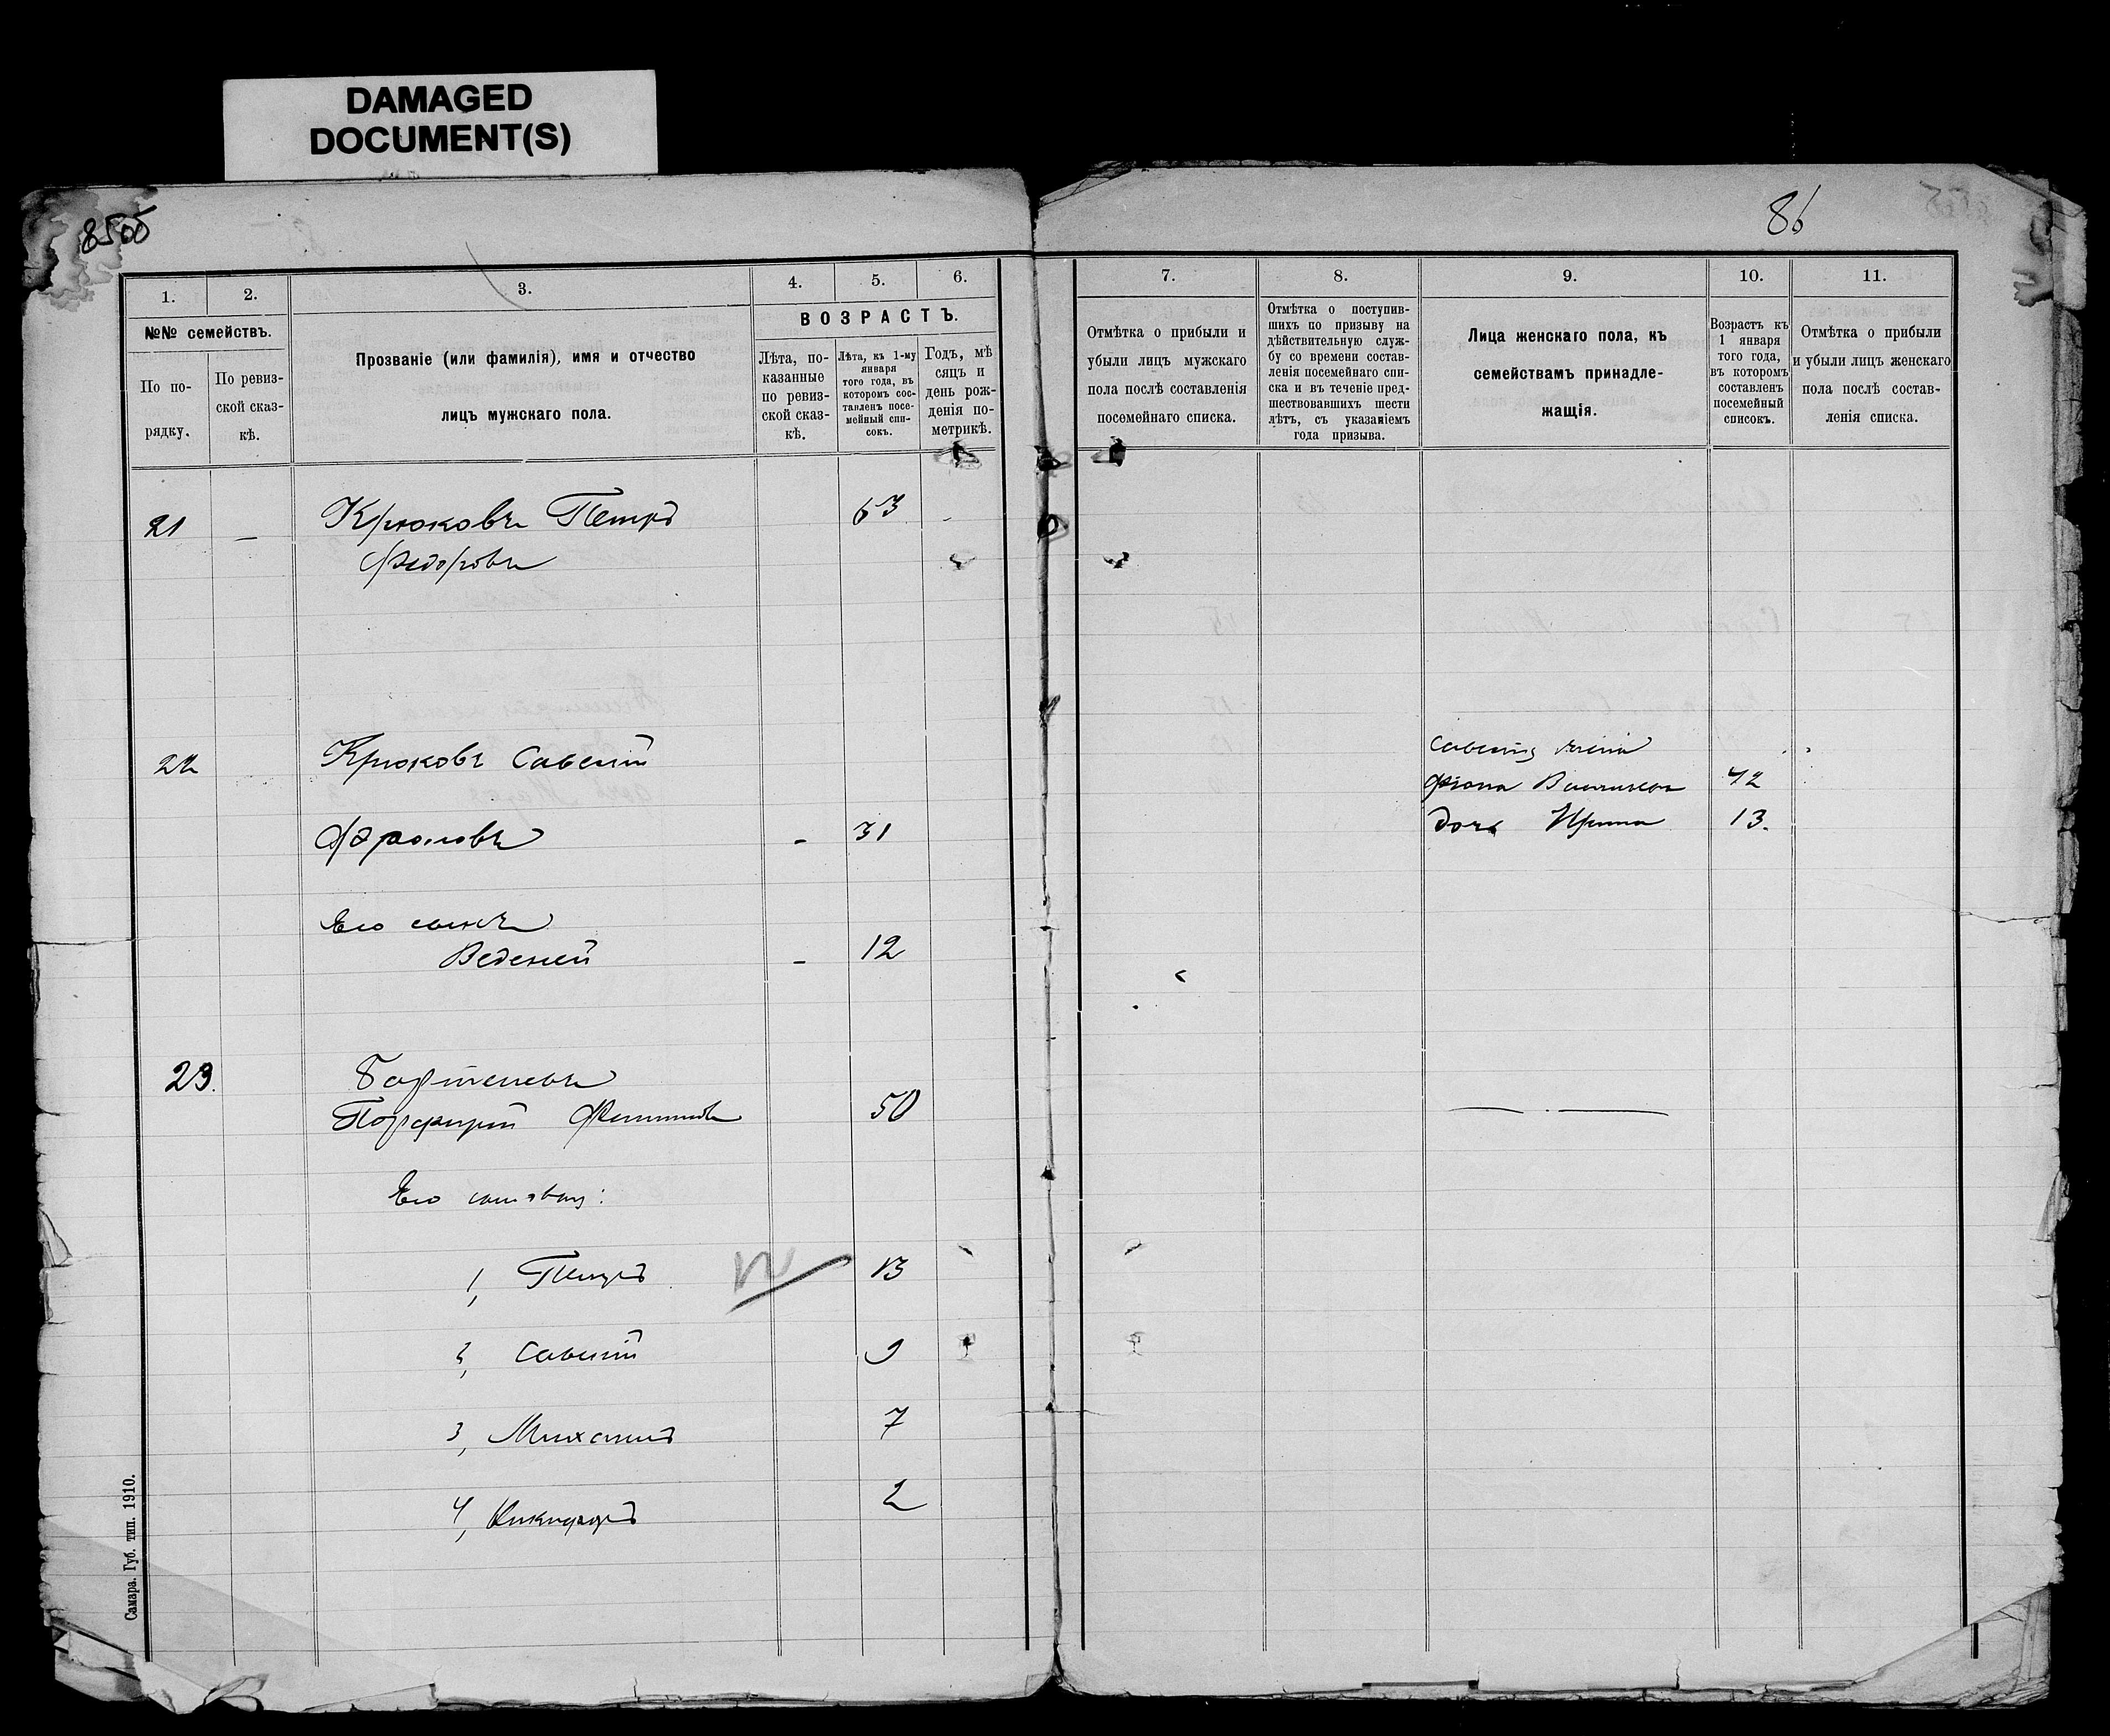 DAMAGED
DOCUMENT(S)
85об
1.
2.
3.
4.
5.
6.
№№ семействъ.
По по-
рядку.
По ревиз-
ской сказ-
кѣ.
Прозваніе (или фамилія), имя и отчество
лицъ мужскаго пола.
ВОЗРАСТЪ.
Лѣта, по-
казанные
по ревиз-
ской сказ-
кѣ.
Лѣта, къ 1-му
января
того года, въ
которомъ сос-
тавленъ посе-
мейный спи-
сокъ.
Годъ, мѣ
сяцъ и
день рож-
денія по-
метрикѣ.
21 — Крюковъ Петръ 63
Федоровъ
22 Крюковъ Савелій
Фроловъ - 31
Его сынъ
Веденей - 12
23. 
Порфирій 50
Его сыновья:
1, Петръ 13
2, Савелій 9
3, Михаилъ 7
4, Никифоръ 2
Самара. Губ. тип. 1910.
86
7.
8.
9.
10.
11.
Отмѣтка о прибыли и
убыли лицъ мужскаго
пола послѣ составленія
посемейнаго списка.
Отмѣтка о поступив-
шихъ по призыву на
дѣйствительную служ-
бу со времени состав-
ленія посемейнаго спи-
ска и въ теченіе пред-
шествовавшихъ шести
лѣтъ, съ указаніемъ
года призыва.
Лица женскаго пола, къ
семействамъ принадле-
жащія.
Возрастъ къ
1 января
того года,
въ которомъ
составленъ
посемейный
списокъ.
Отмѣтка о прибыли
и убыли лицъ женскаго
пола послѣ состав-
ленія списка.
42
дочь Ирина 13.